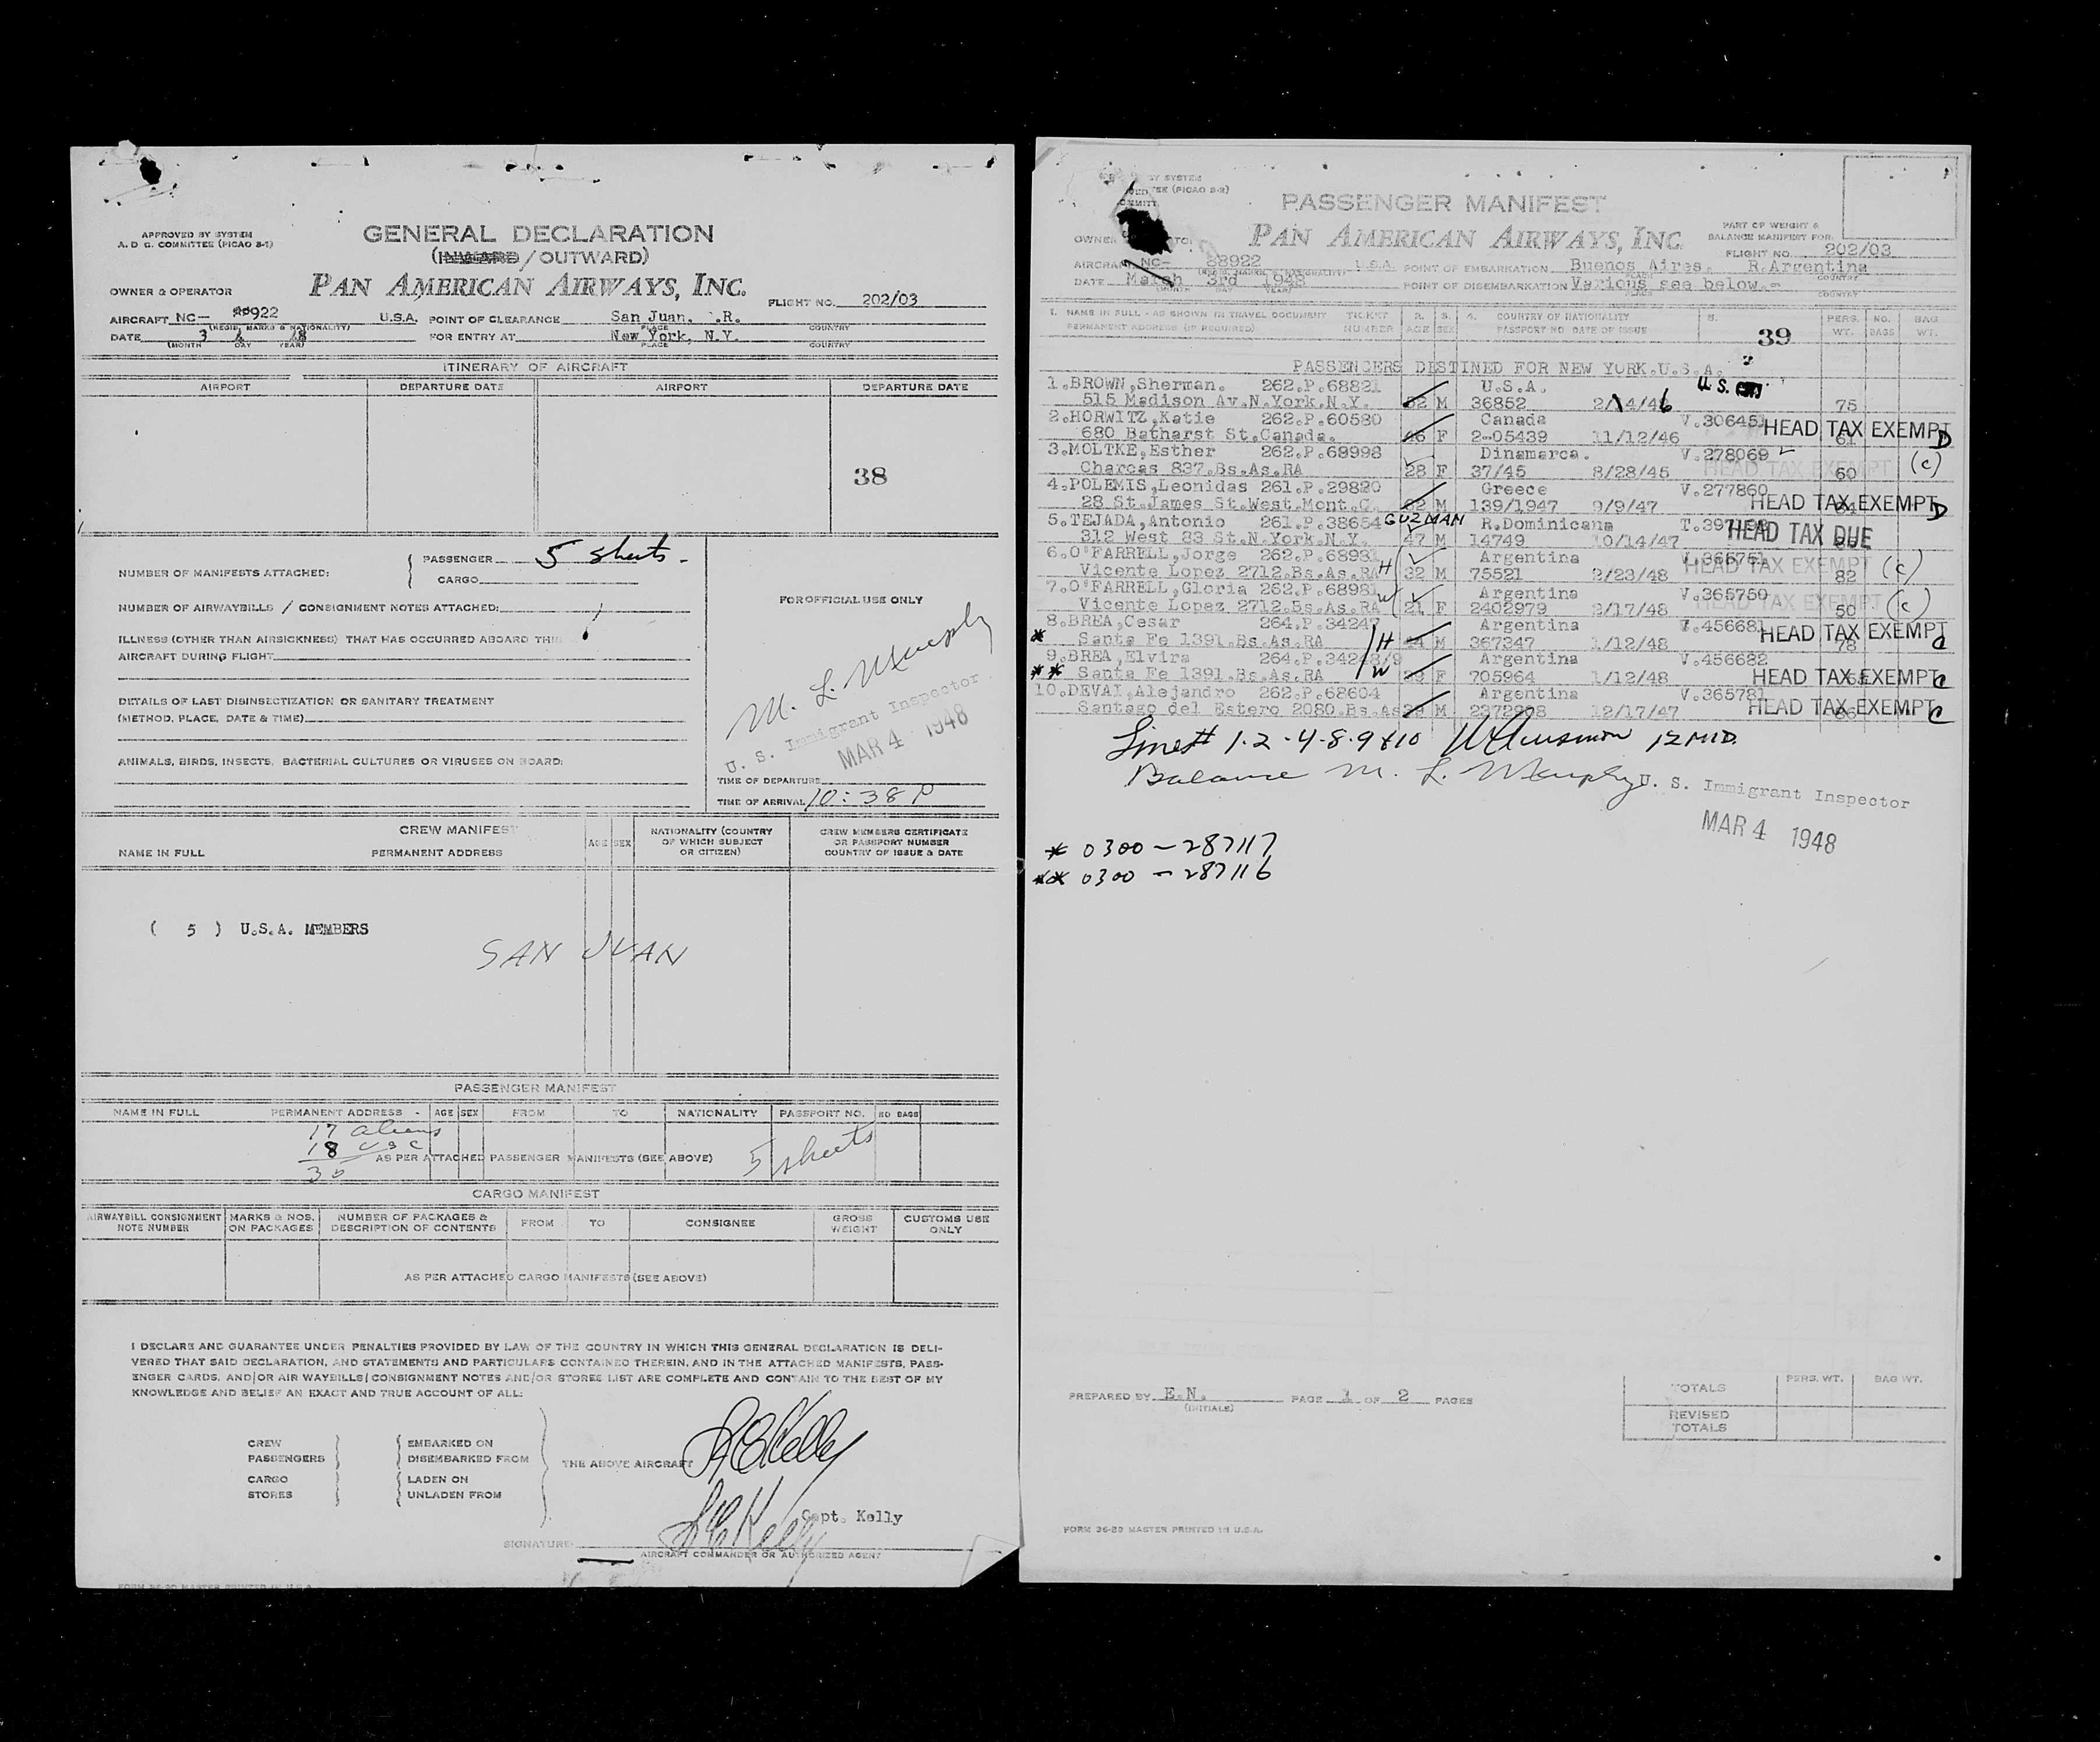 APPROVED BY SYSTEM
A. D. C. COMMITTEE (PICAO 8-1)
GENERAL DECLARATION
(INWARD / OUTWARD)
PAN AMERICAN AIRWAYS, INC.
OWNER & OPERATOR
FLIGHT NO. 202/03
AIRCRAFT NC- 922 U.S.A. POINT OF CLEARANCE San Juan, .R.
(REGIS. MARKS & NATIONALITY) PLACE COUNTRY
DATE 3 4 48 FOR ENTRY AT New York, N.Y.
(MONTH DAY YEAR) PLACE COUNTRY
ITINERARY OF AIRCRAFT
AIRPORT DEPARTURE DATE AIRPORT DEPARTURE DATE
38
NUMBER OF MANIFESTS ATTACHED: PASSENGER 5 sheets -
CARGO
FOR OFFICIAL USE ONLY
NUMBER OF AIRWAYBILLS / CONSIGNMENT NOTES ATTACHED:
ILLNESS (OTHER THAN AIRSICKNESS) THAT HAS OCCURRED ABOARD THIS
AIRCRAFT DURING FLIGHT
DETAILS OF LAST DISINSECTIZATION OR SANITARY TREATMENT
(METHOD, PLACE, DATE & TIME)
M. L. Murphy
U. S. Immigrant Inspector
MAR 4 1948
ANIMALS, BIRDS, INSECTS, BACTERIAL CULTURES OR VIRUSES ON BOARD:
TIME OF DEPARTURE
TIME OF ARRIVAL 10:38 P
CREW MANIFEST
NAME IN FULL PERMANENT ADDRESS AGE SEX NATIONALITY (COUNTRY OF WHICH SUBJECT OR CITIZEN) CREW MEMBERS CERTIFICATE OR PASSPORT NUMBER COUNTRY OF ISSUE & DATE
( 5 ) U.S.A. MEMBERS
SAN JUAN
PASSENGER MANIFEST
NAME IN FULL PERMANENT ADDRESS - AGE SEX FROM TO NATIONALITY PASSPORT NO. NO BAGS
17 aliens
18 USC
AS PER ATTACHED PASSENGER MANIFESTS (SEE ABOVE) 5 sheets
35
CARGO MANIFEST
AIRWAYBILL CONSIGNMENT NOTE NUMBER MARKS & NOS. ON PACKAGES NUMBER OF PACKAGES & DESCRIPTION OF CONTENTS FROM TO CONSIGNEE GROSS WEIGHT CUSTOMS USE ONLY
AS PER ATTACHED CARGO MANIFESTS (SEE ABOVE)
I DECLARE AND GUARANTEE UNDER PENALTIES PROVIDED BY LAW OF THE COUNTRY IN WHICH THIS GENERAL DECLARATION IS DELI-
VERED THAT SAID DECLARATION, AND STATEMENTS AND PARTICULARS CONTAINED THEREIN, AND IN THE ATTACHED MANIFESTS, PASS-
ENGER CARDS, AND/OR AIR WAYBILLS/CONSIGNMENT NOTES AND/OR STORES LIST ARE COMPLETE AND CONTAIN TO THE BEST OF MY
KNOWLEDGE AND BELIEF AN EXACT AND TRUE ACCOUNT OF ALL:
CREW EMBARKED ON
PASSENGERS DISEMBARKED FROM
THE ABOVE AIRCRAFT
CARGO LADEN ON
STORES UNLADEN FROM
Capt. Kelly
SIGNATURE:
AIRCRAFT COMMANDER OR AUTHORIZED AGENT
BY SYSTEM
TEE (PICAO 8-2)
PASSENGER MANIFEST
PAN AMERICAN AIRWAYS, INC.
PART OF WEIGHT &
BALANCE MANIFEST FOR:
FLIGHT NO. 202/03
AIRCRAFT NC- 88922 U.S.A. POINT OF EMBARKATION Buenos Aires. R.Argentina
(REGIS. MARKS & NATIONALITY) PLACE COUNTRY
DATE March 3rd 1948 POINT OF DISEMBARKATION Various see below.-
(MONTH DAY YEAR) PLACE COUNTRY
1. NAME IN FULL - AS SHOWN IN TRAVEL DOCUMENT TICKET 2. 3. 4. COUNTRY OF NATIONALITY 5. PERS. NO. BAG
PERMANENT ADDRESS (IF REQUIRED) NUMBER AGE SEX PASSPORT NO DATE OF ISSUE WT. BAGS WT.
39
PASSENGERS DESTINED FOR NEW YORK.U.S.A.
1.BROWN,Sherman. 262.P.68821 U.S.A. U.S.
515 Madison Av.N.York.N.Y. 32 M 36852 2/14/46 75
2.HORWITZ,Katie 262.P.60580 Canada V.306451 HEAD TAX EXEMPT D
680 Batharst St.Canada. 46 F 2-05439 11/12/46 61
3.MOLTKE,Esther 262.P.69998 Dinamarca. V.278069 HEAD TAX EXEMPT (C)
Charcas 837.Bs.As.RA 28 F 37/45 8/28/45 60
4.POLEMIS,Leonidas 261.P.29820 Greece V.277860 HEAD TAX EXEMPT D
28 St.James St.West.Mont.C. 62 M 139/1947 9/9/47
5.TEJADA,Antonio 261.P.38654 GUZMAN R.Dominicana HEAD TAX DUE
312 West 83 St.N.York.N.Y. 47 M 14749 10/14/47
6.O'FARRELL,Jorge 262.P.68981 Argentina V.365751 HEAD TAX EXEMPT (C)
Vicente Lopez 2712.Bs.As.RA H 32 M 75521 2/23/48 82
7.O'FARRELL,Gloria 262.P.68981 Argentina V.365750 HEAD TAX EXEMPT (C)
Vicente Lopez 2712.Bs.As.RA W 21 F 2402979 2/17/48 50
8.BREA,Cesar 264.P.34247 Argentina V.456681 HEAD TAX EXEMPT C
* Santa Fe 1391.Bs.As.RA H 44 M 367347 1/12/48 78
9.BREA,Elvira 264.P.34248/9 Argentina V.456682
** Santa Fe 1391.Bs.As.RA W 39 F 705964 1/12/48 HEAD TAX EXEMPT C
10.DEVAI,Alejandro 262.P.68604 Argentina V.365781 HEAD TAX EXEMPT C
Santago del Estero 2080.Bs.As M 2372908 12/17/47
Line # 1-2-4-8-9 & 10 12 MID.
Balance M. L. Murphy U. S. Immigrant Inspector
MAR 4 1948
* 0300 - 287117
** 0300 - 287116
PREPARED BY E.N. PAGE 1 OF 2 PAGES
(INITIALS)
PERS. WT. BAG WT.
TOTALS
REVISED TOTALS
FORM 36-20 MASTER PRINTED IN U.S.A.